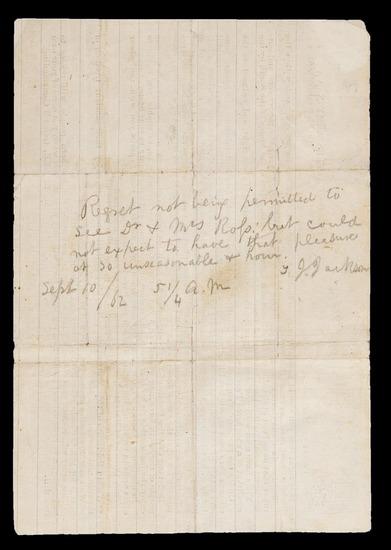 Regret not being permitted to
see Dr & Mrs Ross, but could
not expect to have that pleasure
at so unseasonable & hour.
T. J. Jackson
Sept 10/62 5¼ A.M